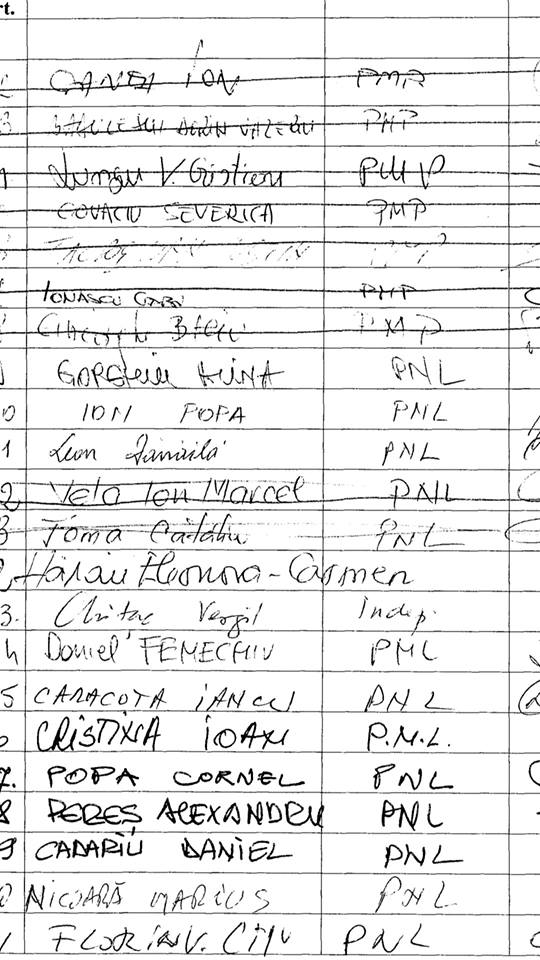 rt.
GANEA ION PMP
3 BĂSICESCU ALIN VALERIU PMP
Lungu V. Cristian PMP
COVACIU SEVERICA PMP
IONAȘCU GABI PMP
PMP
GORGHIU ALINA PNL
0 ION POPA PNL
1 Leon Dănăilă PNL
2 Vela Ion Marcel PNL
3 Toma Cătălin PNL
Hărău Eleonora-Carmen
3. Chitac Vergil Indep.
4 Daniel FENECHIU PNL
5 CARACOTA IANCU PNL
CRISTINA IOAN P.N.L.
7. POPA CORNEL PNL
8 PEREȘ ALEXANDRU PNL
9 CADARIU DANIEL PNL
0 NICOARĂ MARIUS PNL
1 FLORIN V. CÎȚU PNL